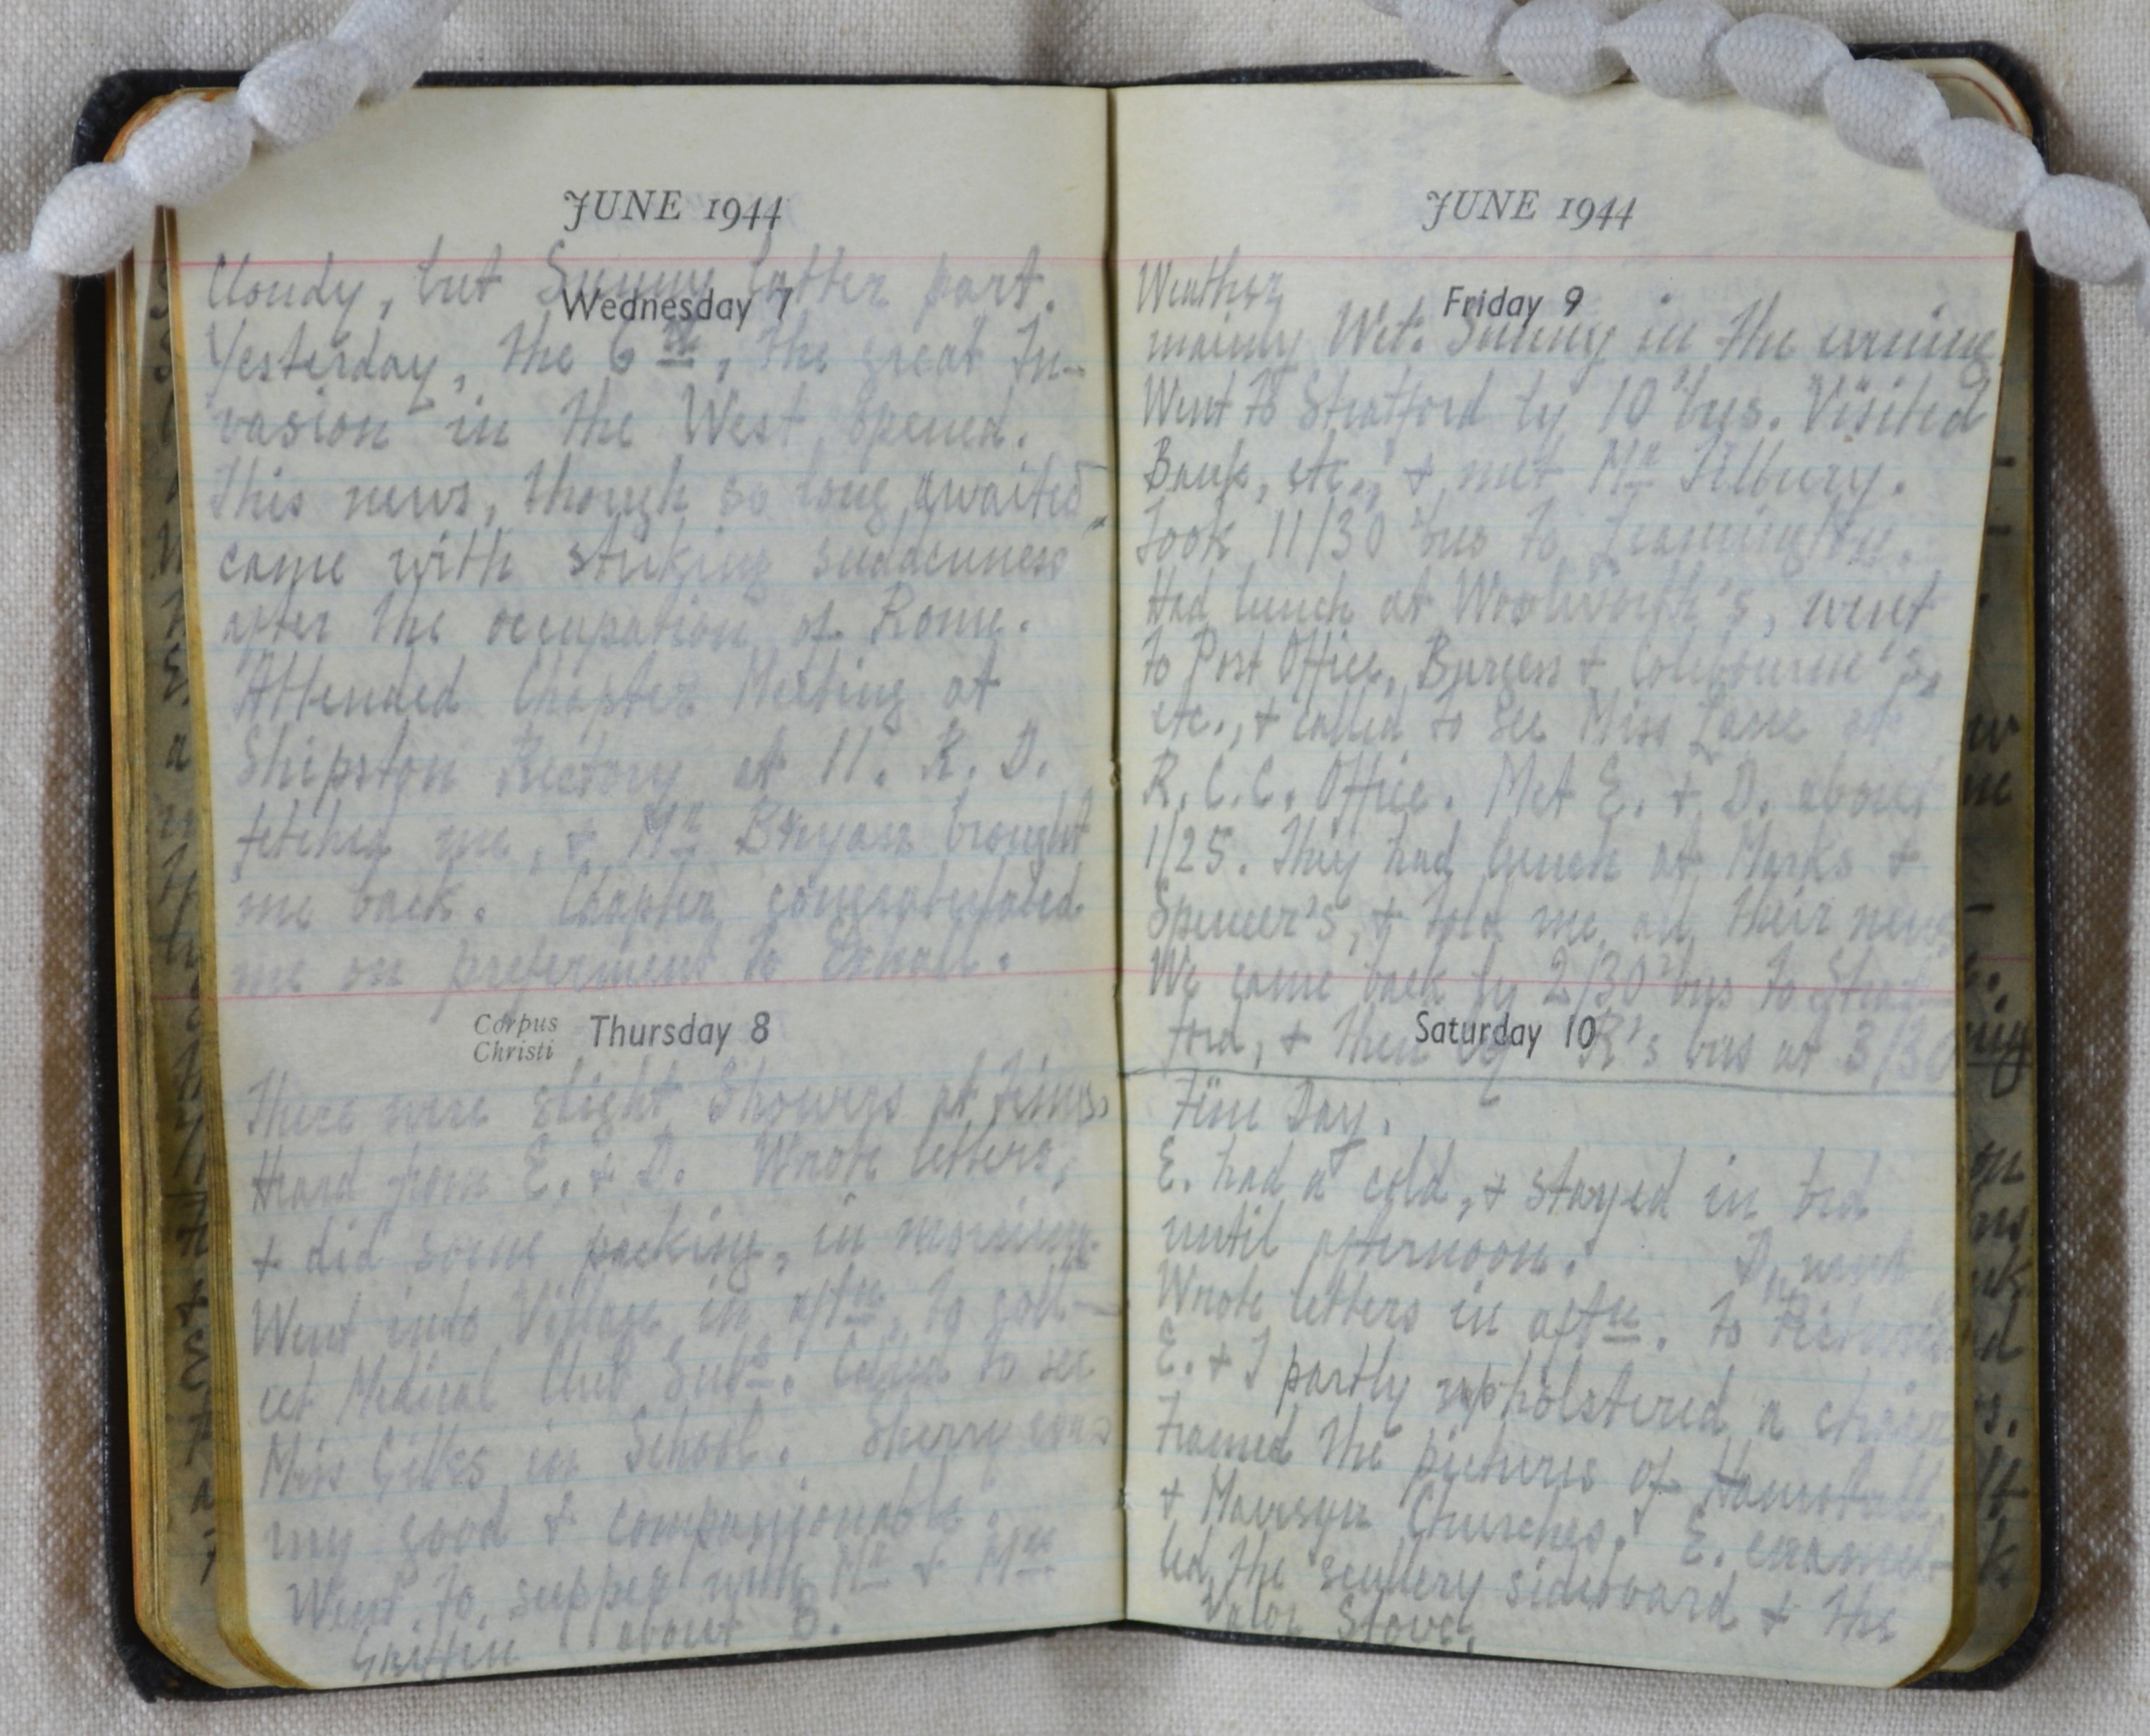 JUNE 1944
Cloudy, but Sunny latter part.
Wednesday 7
Yesterday, the 6th, the great In-
vasion in the West opened.
This news, though so long awaited,
came with striking suddenness
after the occupation of Rome.
Attended Chapter Meeting at
Shipston Rectory at 11. R. D.
fetched me, & Mr Bryan brought
me back. Chapter congratulated
me on preferment to Exhall.
Corpus
Christi
Thursday 8
There were slight Showers at times.
Heard from E. & D. Wrote letters,
& did some packing, in morning.
Went into Village in aftn. to coll-
ect Medical Club Subs. Called to see
Miss Gilkes in School. Sherry was
my good & companionable.
Went to supper with Mr & Mrs
Griffin about 8.
JUNE 1944
Weather
Friday 9
mainly Wet. Sunny in the evening
Went to Stratford by 10 'bus. Visited
Bank, etc., & met Mr Tilbury.
Took 11/30 'bus to Leamington.
Had lunch at Woolworth's, went
to Post Office, Burgess & Colebourne's,
etc., & called to see Miss Lane at
R.C.C. Office. Met E. & D. about
1/25. They had lunch at Marks &
Spencer's, & told me all their news.
We came back by 2/30 'bus to Strat-
ford, & then by R's bus at 3/30
Saturday 10
Fine Day.
E. had a cold, & stayed in bed
until afternoon. D. went
Wrote letters in aftn. to
E. & I partly upholstered a chair
Framed the pictures of Hamstall
& Mavesyn Churches. E. enamel-
led the scullery sideboard & the
Valor Stove.